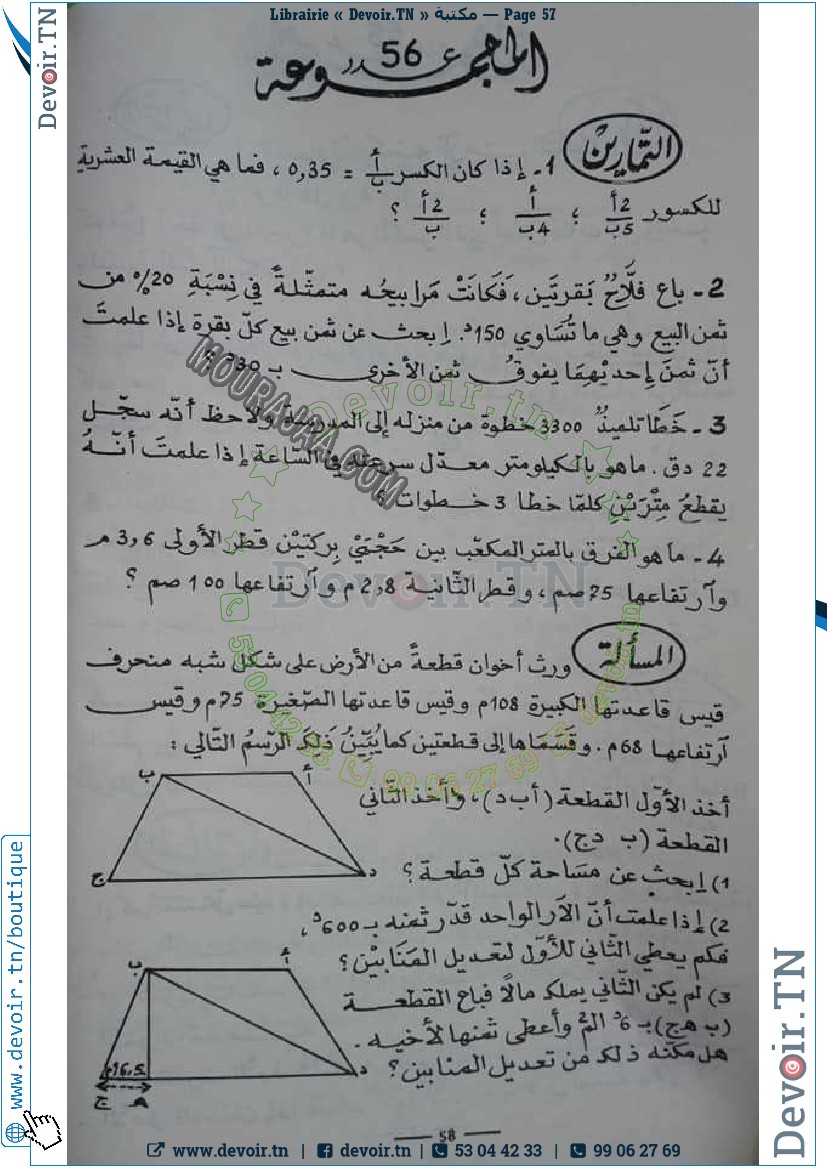 Librairie « Devoir.TN » مكتبة — Page 57
Devoir.TN
المجموعة عدد 56
التمارين
1- إذا كان الكسر أ/ب = 0,35 ، فما هي القيمة العشرية
للكسور 2أ/5ب ؛ أ/4ب ؛ 2أ/ب ؟
2- باع فلّاحٌ بقرتين، فَكَانَتْ مَرابيحُه متمثّلةً في نِسْبَةِ 20% من
ثمن البيع وهي ما تُساوي 150د. إبحث عن ثمن بيع كلّ بقرة إذا علمتَ
أنّ ثمنَ إحديْهِمَا يفوقُ ثمن الأخرى بـ
3- خَطَا تلميذٌ 3300 خطوة من منزله إلى المدرسة ولاحظ أنّه سجّل
22 دق. ما هو بالكيلومتر معدّل سرعته في السّاعة إذا علمتَ أنّهُ
يقطعُ مِتْرَيْنِ كلمّا خطا 3 خطوات ؟
4- ما هو الفرق بالمتر المكعّب بين حَجْمَيْ بِركتيْن قطر الأولى 3,6 م
وآرتفاعها 75 صم ، وقطر الثّانية 2,8 م وآرتفاعها 100 صم ؟
المسألة
ورث أخوان قطعةً من الأرض على شكل شبه منحرف
قيس قاعدتها الكبيرة 108م وقيس قاعدتها الصّغيرة 75م وقيس
آرتفاعها 68م. وقَسَمَاها إلى قطعتين كما يُبيِّنُ ذَلِكَ الرّسمُ التّالي :
أ
ب
ج
د
أخذ الأوّل القطعة (أ ب د)، وأخذ الثّاني
القطعة (ب د ج).
1) إبحث عن مسَاحة كلّ قطعة ؟
2) إذا علمت أنّ الآر الواحد قدّر ثمنه بـ 600د،
فكم يعطي الثّاني للأوّل لتعديل المَنَابَيْن ؟
3) لم يكن الثّاني يملك مالًا فباع القطعة
(ب هـ ج) بـ 6د الم2 وأعطى ثمنها لأخيه.
هل مكّنه ذلك من تعديل المنابين ؟
أ
ب
د
16,5
ج
هـ
58
MOURAJAA.COM
devoir.tn
Devoir.TN
53 04 42 33
99 06 27 69
devoir.tn
www.devoir.tn/boutique
Devoir.TN
www.devoir.tn | devoir.tn | 53 04 42 33 | 99 06 27 69